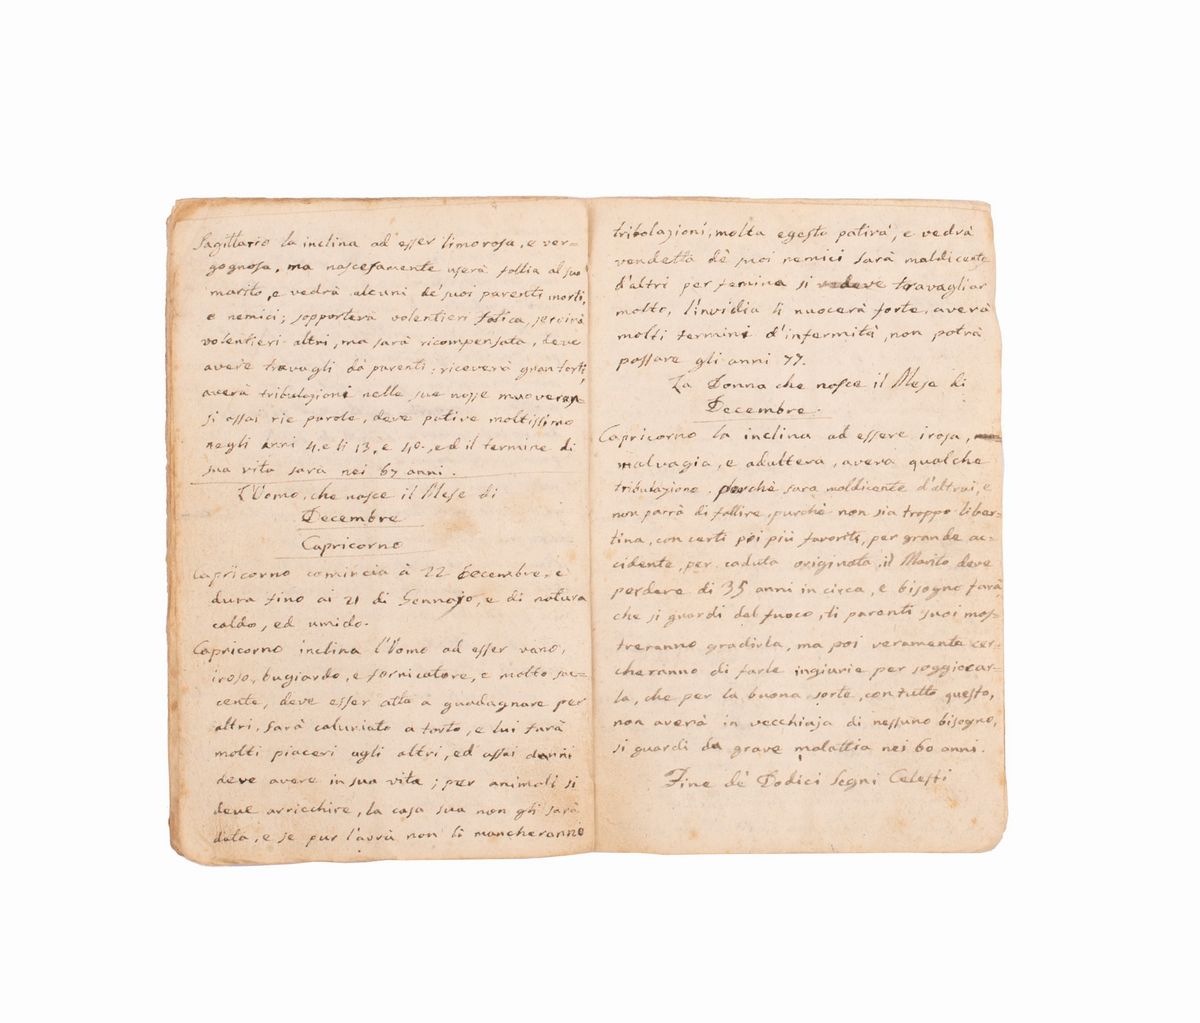 Sagittario la inclina ad esser timorosa, e ver=
gognosa, ma nascosamente userà follia al suo
marito, e vedrà alcuni de' suoi parenti morti,
e nemici; sopporterà volentieri fatica, servirà
volentieri altri, ma sarà ricompensata, deve
avere travagli dà parenti, riceverà gran torti,
averà tribulazioni nelle sue nosse
si assai rie parole, deve patire moltissimo
negli anni 4. e li 13. e 40., ed il termine di
sua vita sarà nei 67 anni.
L'Uomo, che nasce il Mese di
Decembre
Capricorno
Capricorno comincia à 22 Decembre, e
dura fino ai 21 di Gennajo, e di natura
caldo, ed umido.
Capricorno inclina l'Uomo ad esser vano,
iroso, bugiardo, e fornicatore, e molto sac=
cente, deve esser atto a guadagnare per
altri, sarà caluniato a torto, e lui farà
molti piaceri agli altri, ed assai danni
deve avere in sua vita; per animali si
deve arricchire, la casa sua non gli sarà
data, e se pur l'avrà non li mancheranno
tribolazioni, molta egesta patirà, e vedrà
vendetta dè suoi nemici sarà maldicente
d'altri per femina si deve travagliar
molto, l'invidia li nuocerà forte, averà
molti termini d'infermità, non potrà
passare gli anni 77.
La Donna che nasce il Mese di
Decembre.
Capricorno la inclina ad essere irosa,
malvagia, e adultera, averà qualche
tribulazione, perchè sara maldicente d'altrui, e
non parrà di fallire, purchè non sia troppo liber=
tina, con certi poi più favoriti, per grande ac=
cidente, per caduta originata, il Marito deve
perdere di 35 anni in circa, e bisogno farà
che si guardi dal fuoco, li parenti suoi mos=
treranno gradirla, ma poi veramente cer=
cheranno di farle ingiurie per soggiocar=
la, che per la buona sorte, con tutto questo,
non averà in vecchiaja di nessuno bisogno,
si guardi da grave malattia nei 60 anni.
Fine dè Dodici Segni Celesti